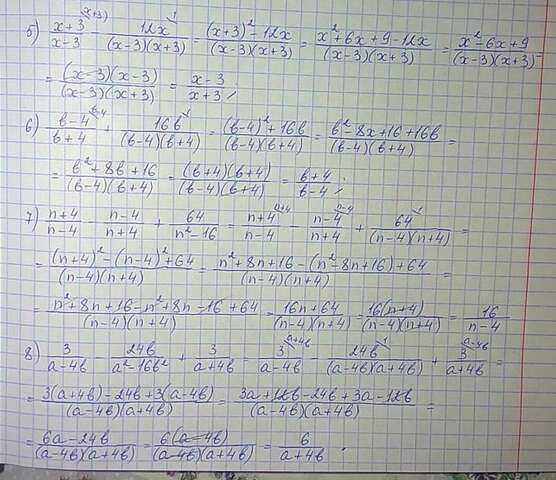 5) (x+3)/(x-3)^(x+3) - 12x/((x-3)(x+3))^1 = ((x+3)² - 12x)/((x-3)(x+3)) = (x²+6x+9-12x)/((x-3)(x+3)) = (x²-6x+9)/((x-3)(x+3)) =
= ((x-3)(x-3))/((x-3)(x+3)) = (x-3)/(x+3);
6) (в-4)/(в+4)^(в-4) + 16в/((в-4)(в+4))^1 = ((в-4)²+16в)/((в-4)(в+4)) = (в²-8x+16+16в)/((в-4)(в+4)) =
= (в²+8в+16)/((в-4)(в+4)) = ((в+4)(в+4))/((в-4)(в+4)) = (в+4)/(в-4);
7) (n+4)/(n-4) - (n-4)/(n+4) + 64/(n²-16) = (n+4)/(n-4)^(n+4) - (n-4)/(n+4)^(n-4) + 64/((n-4)(n+4))^1 =
= ((n+4)²-(n-4)²+64)/((n-4)(n+4)) = (n²+8n+16-(n²-8n+16)+64)/((n-4)(n+4)) =
= (n²+8n+16-n²+8n-16+64)/((n-4)(n+4)) = (16n+64)/((n-4)(n+4)) = (16(n+4))/((n-4)(n+4)) = 16/(n-4)
8) 3/(a-4в) - 24в/(a²-16в²) + 3/(a+4в) = 3/(a-4в)^(a+4в) - 24в/((a-4в)(a+4в))^1 + 3/(a+4в)^(a-4в) =
= (3(a+4в)-24в+3(a-4в))/((a-4в)(a+4в)) = (3a+12в-24в+3a-12в)/((a-4в)(a+4в)) =
= (6a-24в)/((a-4в)(a+4в)) = (6(a-4в))/((a-4в)(a+4в)) = 6/(a+4в).